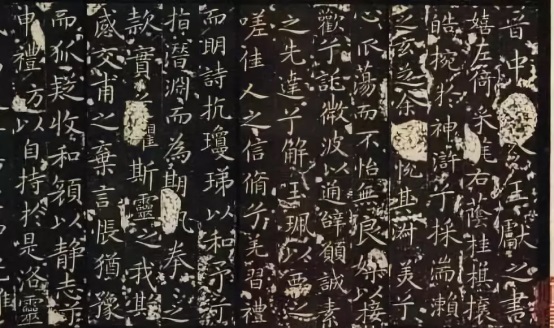 晉中令王獻之書
嬉左倚采旄右蔭桂旗攘
皓捥於神滸兮採湍瀨
之玄芝余悅其淑美兮
心振蕩而不怡無良媒以接
歡兮託微波以通辭願誠素
之先達兮解玉珮以要之
嗟佳人之信脩兮羌習禮
而明詩抗瓊珶以和予兮
指潛淵而為期執拳之
款實懼斯靈之我欺
感交甫之棄言悵猶豫
而狐疑收和顏以靜志兮
申禮防以自持於是洛靈